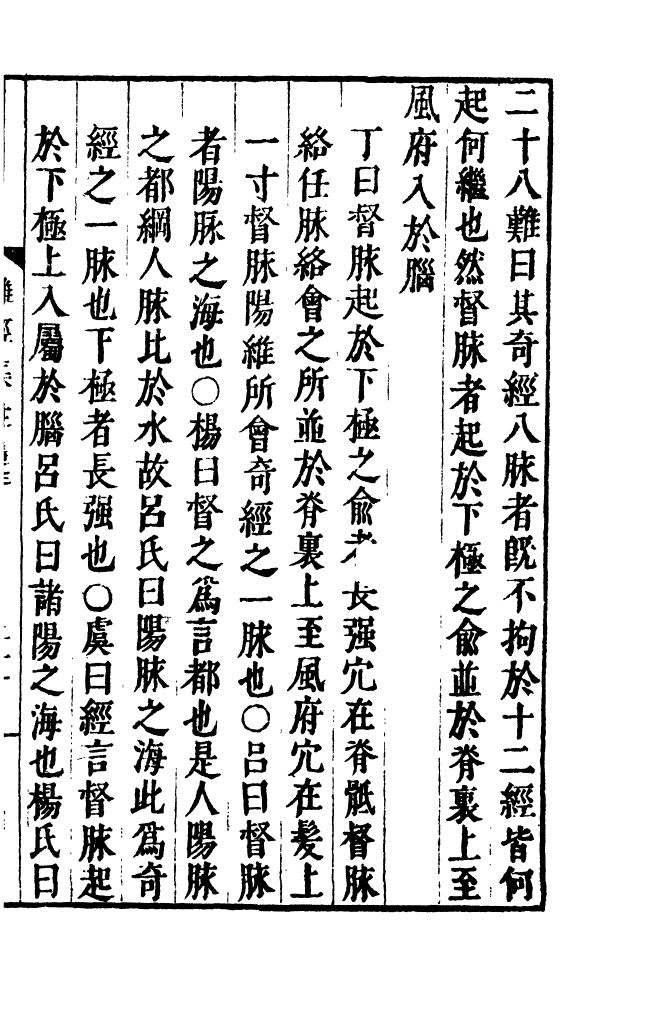 二十八難曰其奇經八脉者旣不拘於十二經皆何
起何繼也然督脉者起於下極之兪並於脊裏上至
風府入於腦
丁曰督脉起於下極之兪者長强穴在脊骶督脉
絡任脉絡會之所並於脊裏上至風府穴在髪上
一寸督脉陽維所會奇經之一脉也〇呂曰督脉
者陽脉之海也〇楊曰督之爲言都也是人陽脉
之都綱人脉比於水故呂氏曰陽脉之海此爲奇
經之一脉也下極者長强也〇虞曰經言督脉起
於下極上入屬於腦呂氏曰諸陽之海也楊氏曰